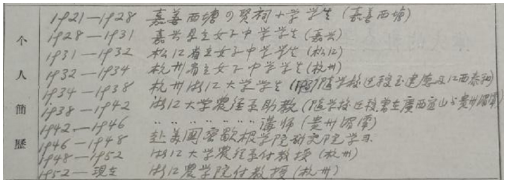 个人简歷
1921—1928 嘉善西塘四贤祠小学学生(嘉善西塘)
1928—1931 嘉兴县立女子中学学生(嘉兴)
1931—1932 松江省立女子中学学生(松江)
1932—1934 杭州省立女子中学学生(杭州)
1934—1938 杭州浙江大学学生(随学校迁移至建德及江西泰和)
1938—1942 浙江大学農经系助教(随学校迁移宜山与贵州湄南)
1942—1946 〃 〃 〃 〃 〃 〃 讲师(贵州湄南)
1946—1948 赴美國密歇根学院研究院学习
1948—1952 浙江大学農经系付教授(杭州)
1952—现在 浙江農学院付教授(杭州)